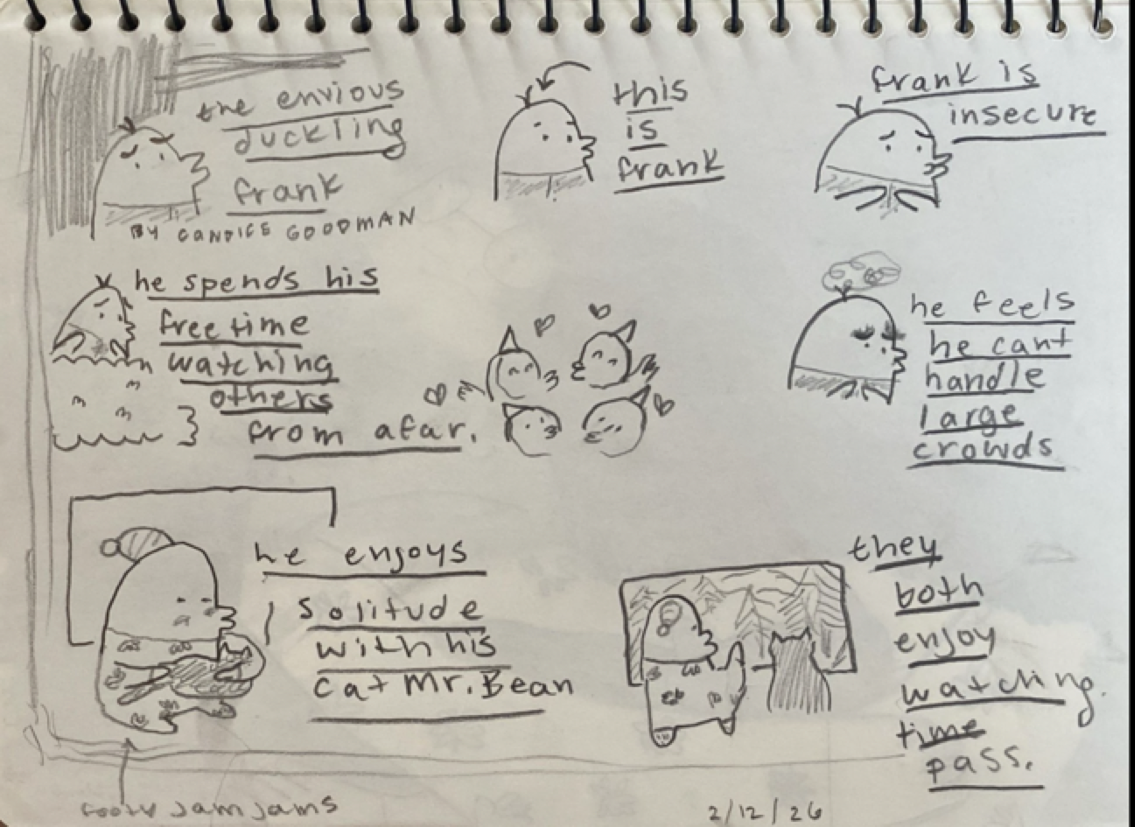 the envious
duckling
frank
BY CANDICE GOODMAN
this
is
frank
frank is
insecure
he spends his
free time
watching
others
from afar.
he feels
he cant
handle
large
crowds
he enjoys
solitude
with his
cat Mr. Bean
footy jam jams
they
both
enjoy
watching
time
pass.
2/12/26